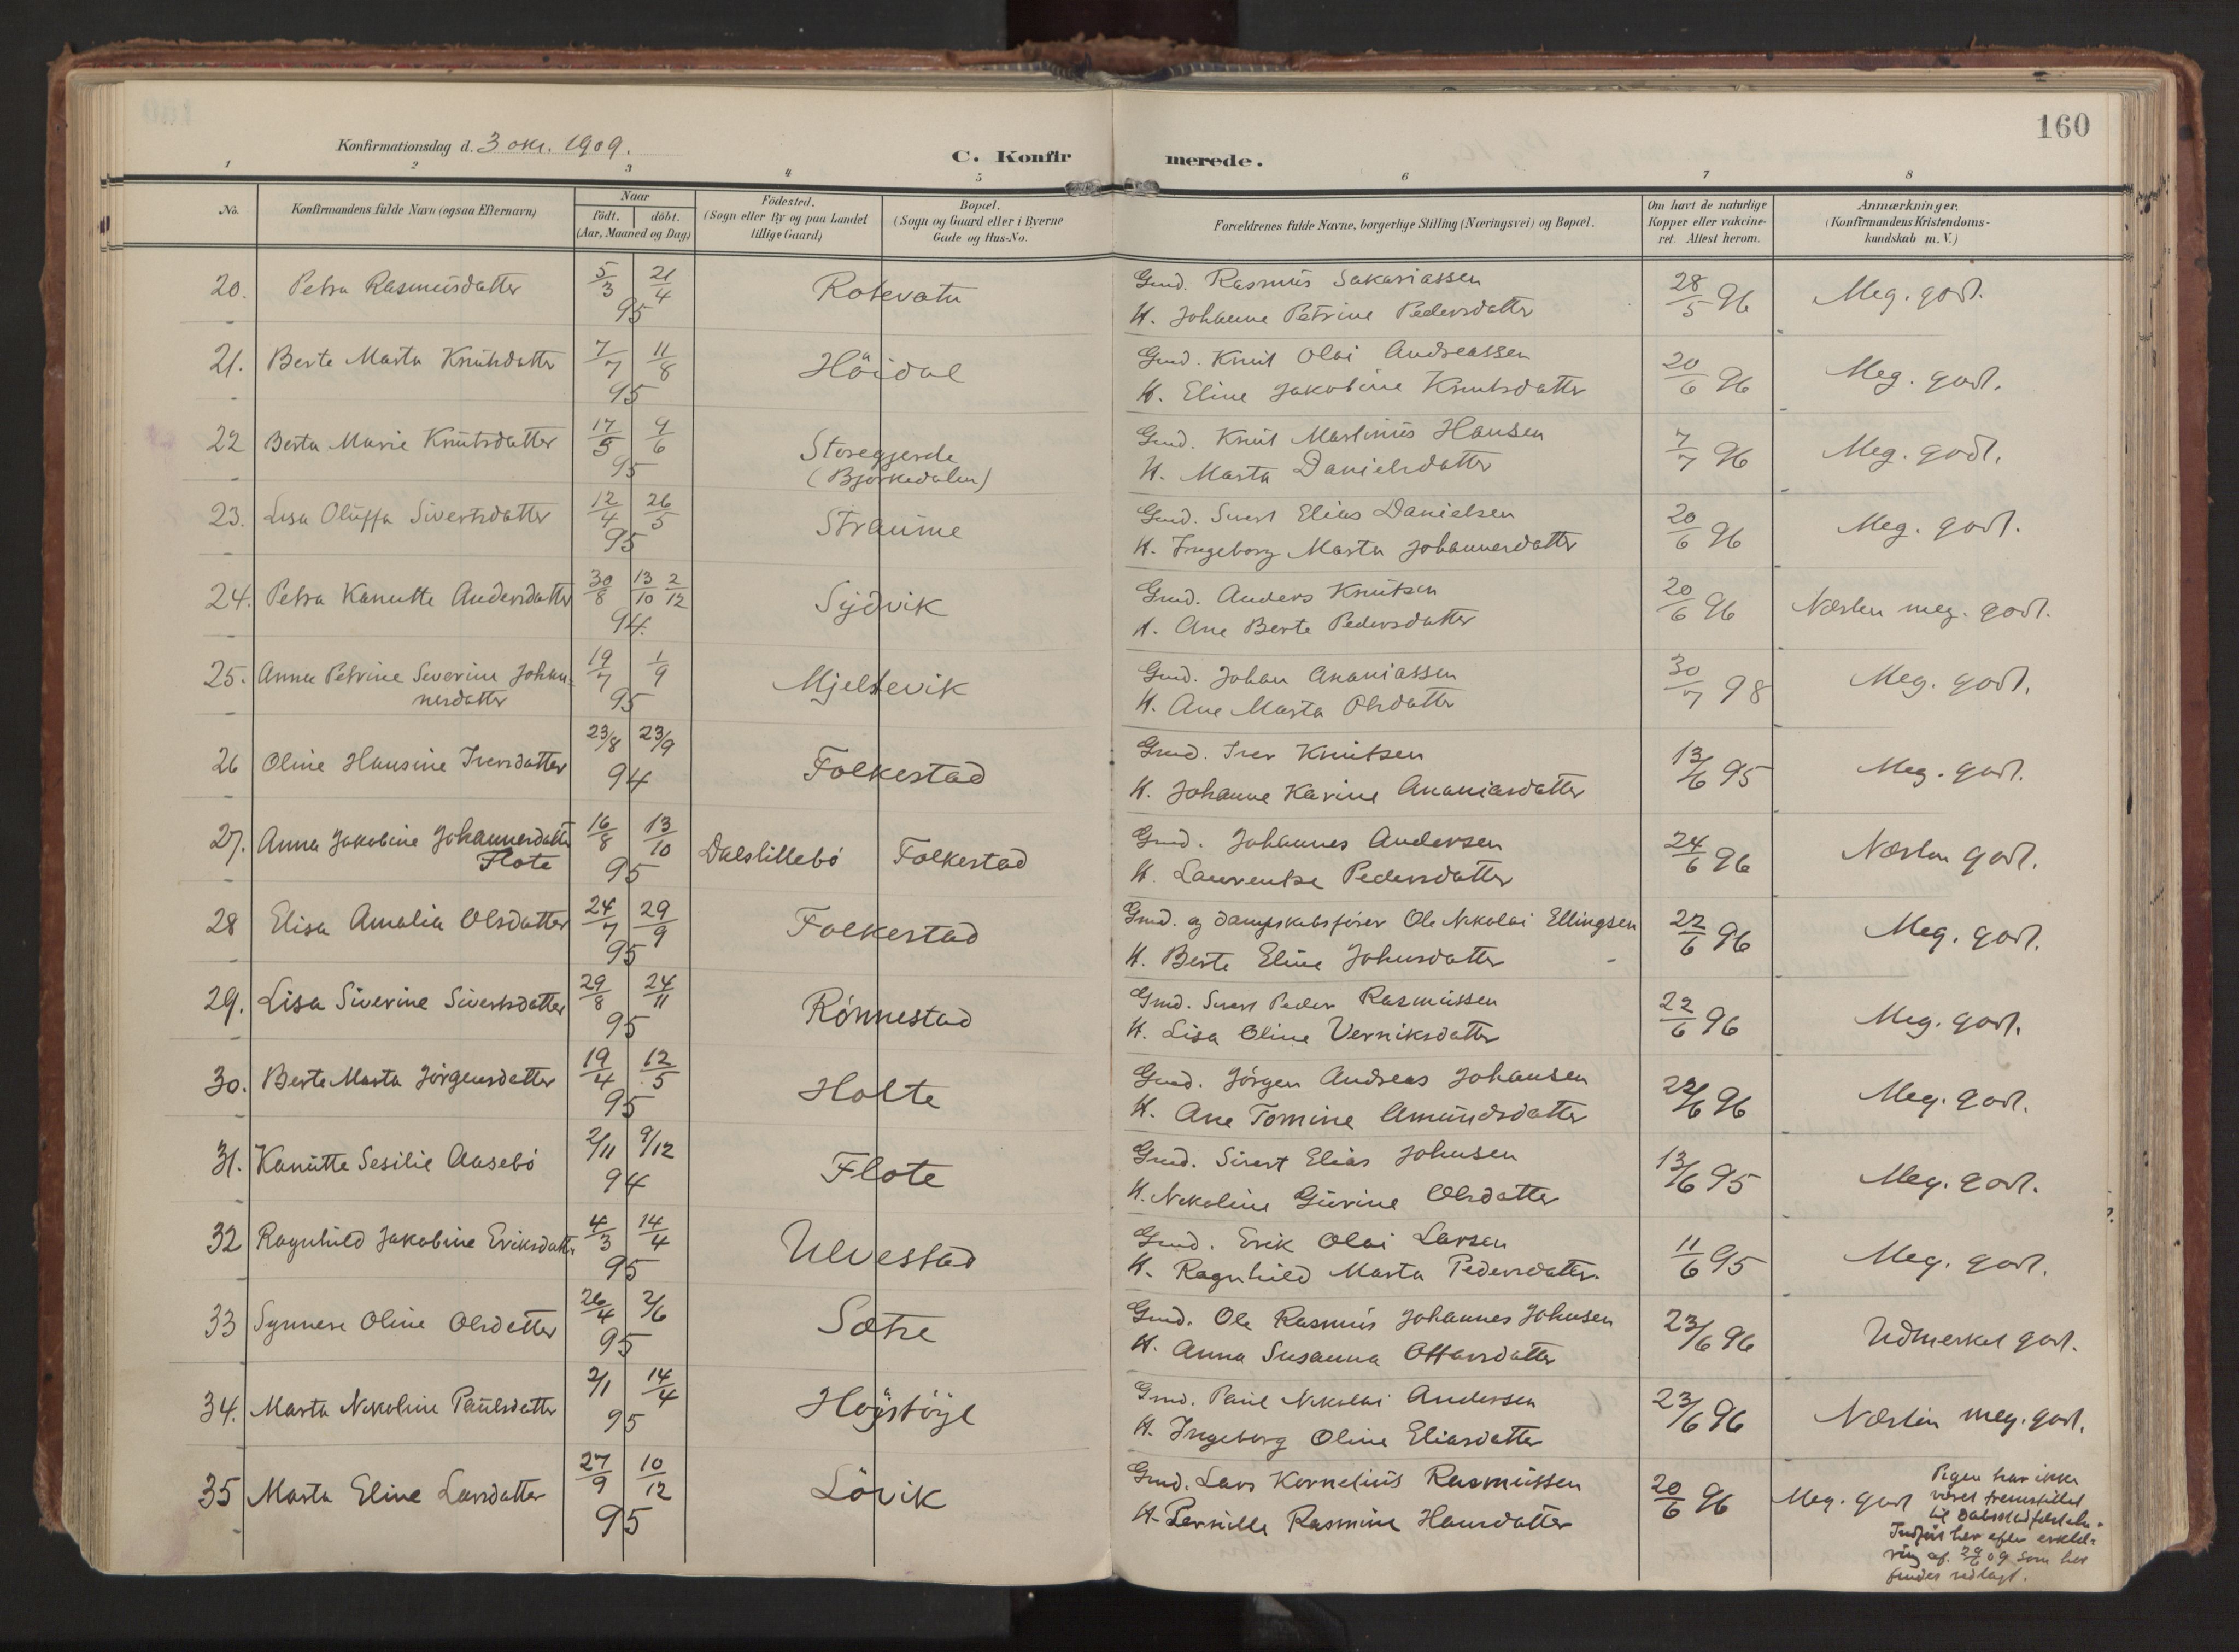 160
Konfirmationsdag d. 3 okt. 1909.
C. Konfirmerede.
1 2 3 4 5 6 7 8
No.
Konfirmandens fulde Navn (ogsaa Efternavn)
Naar
födt. döbt.
(Aar, Maaned og Dag)
Födested.
(Sogn eller By og paa Landet
tillige Gaard)
Bopæl.
(Sogn og Gaard eller i Byerne
Gade og Hus-No.
Forældrenes fulde Navne, borgerlige Stilling (Næringsvei) og Bopæl.
Om havt de naturlige
Kopper eller vakcine-
ret. Attest herom.
Anmærkninger.
(Konfirmandens Kristendoms-
kundskab m. V.)
20. Petra Rasmusdatter 5/3 21/4 95 Rotevatn Gmd. Rasmus Sakariassen 28/5 96 Meg. godt.
K. Johanne Petrine Pedersdatter
21. Berte Marta Knutsdatter 7/7 11/8 95 Höidal Gmd. Knut Olai Andreassen 20/6 96 Meg. godt.
K. Eline Jakobine Knutsdatter
22 Berta Marie Knutsdatter 17/5 9/6 95 Storegjerde Gmd. Knut Martinus Hansen 7/7 96 Meg. godt.
(Bjørkedalen) K. Marta Danielsdatter
23. Lisa Oluffa Sivertsdatter 12/4 26/5 95 Straume Gmd. Sivert Elias Danielsen 20/6 96 Meg. godt.
K. Ingeborg Marta Johannesdatter
24. Petra Kanutte Andersdatter 30/8 13/10 2/12 94. Sydvik Gmd. Anders Knutsen 20/6 96 Næsten meg. godt.
K. Ane Berte Pedersdatter
25. Anne Petrine Severine Johan- 19/7 1/9 95 Mjeltevik Gmd. Johan Ananiassen 30/7 98 Meg. godt.
nesdatter K. Ane Marta Olsdatter
26 Oline Hansine Iversdatter 23/8 23/9 94 Folkestad Gmd. Iver Knutsen 13/6 95 Meg. godt.
K. Johanne Karine Ananiasdatter
27. Anna Jakobine Johannesdatter 16/8 13/10 95 Dalslillebö Folkestad Gmd. Johannes Andersen 24/6 96 Næsten godt.
Flote K. Laurentse Pedersdatter
28 Elisa Amalia Olsdatter 24/7 29/9 95 Folkestad Gmd. og dampskibsfører Ole Nikolai Ellingsen 22/6 96 Meg. godt.
K. Berte Eline Johnsdatter
29. Lisa Siverine Sivertsdatter 29/8 24/11 95 Rönnestad Gmd. Sivert Peder Rasmussen 22/6 96 Meg. godt.
K. Lisa Oline Verniksdatter
30. Berte Marta Jörgensdatter 19/4 12/5 95 Holte Gmd. Jörgen Andreas Johansen 22/6 96 Meg. godt.
K. Ane Tomine Amundsdatter
31. Kanutte Sesilie Aasebö 2/11 9/12 94 Flote Gmd. Sivert Elias Johnsen 13/6 95 Meg. godt.
K. Nikoline Gurine Olsdatter
32 Ragnhild Jakobine Eriksdatter 4/3 14/4 95 Ulvestad Gmd. Erik Olai Larsen 11/6 95 Meg. godt.
K. Ragnhild Marta Pedersdatter.
33 Synneve Oline Olsdatter 26/4 2/6 95 Sætre Gmd. Ole Rasmus Johannes Johnsen 23/6 96 Udmerket godt.
K. Anna Susanna Ottarsdatter
34. Marta Nikoline Paulsdatter 2/1 14/4 95 Höystöyl Gmd. Paul Nikolai Andersen 23/6 96 Næsten meg. godt.
K. Ingeborg Oline Eliasdatter
35 Marta Eline Larsdatter 27/9 10/12 95 Lövik Gmd. Lars Kornelius Rasmussen 20/6 96 Meg. godt
K. Pernille Rasmine Hansdatter
Pigen har ikke
været fremstillet
til
Indført her efter erklæ-
ring af 29/6 09 som her
findes vedlagt.